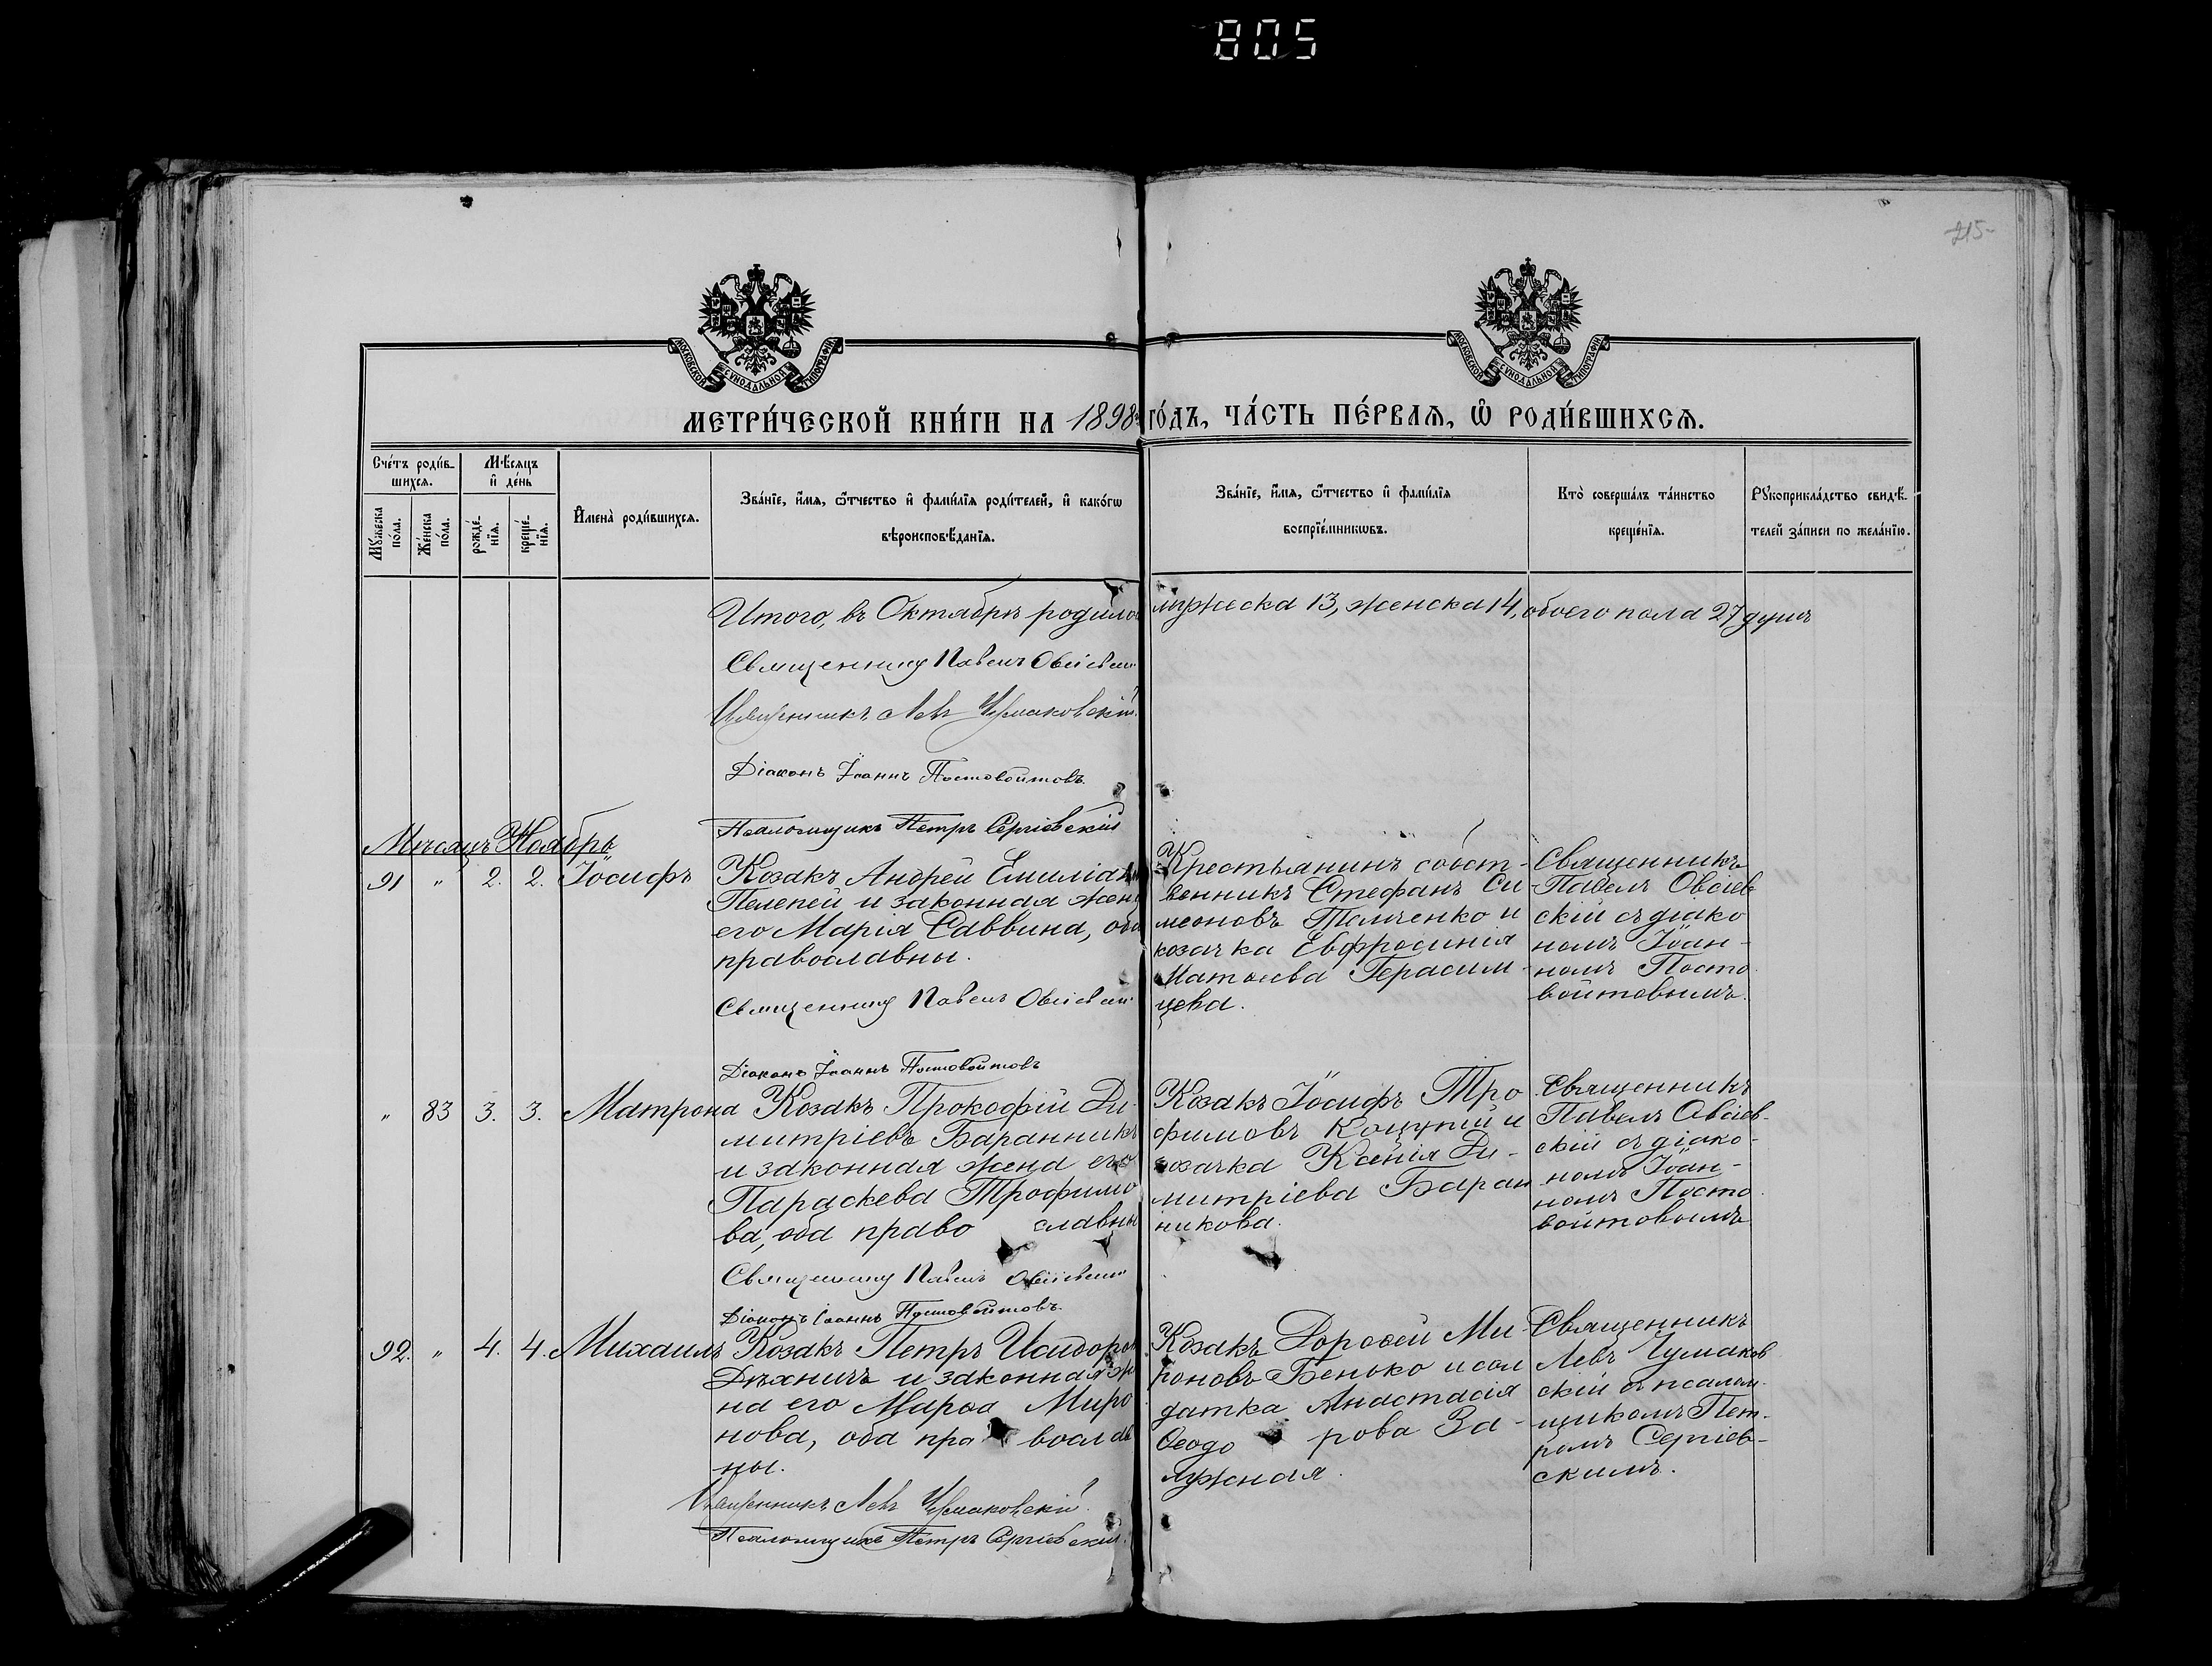 805
215
МОСКОВСКОЙ СѴНОДАЛЬНОЙ ТИПОГРАФІИ
МОСКОВСКОЙ СѴНОДАЛЬНОЙ ТИПОГРАФІИ
МЕТРИ́ЧЕСКОЙ КНИ́ГИ НА 1898 ГО́ДЪ, ЧА́СТЬ ПЕ́РВАѦ, Ѽ РОДИ́ВШИХСѦ.
Сче́тъ роди́в-
шихсѧ.
Мꙋжеска по́ла.
Же́нска по́ла.
Мѣ́сѧцъ
и҆ де́нь
рожде́-
нїѧ.
креще́-
нїѧ.
И҆мена̀ роди́вшихсѧ.
Зва́нїе, и҆́мѧ, ѻ҆́тчество и҆ фами́лїѧ роди́телей, и҆ како́гѡ
вѣроисповѣ́данїѧ.
Зва́нїе, и҆́мѧ, ѻ҆́тчество и҆ фами́лїѧ
воспрїе́мникѡвъ.
Кто̀ соверша́лъ та́инство
креще́нїѧ.
Рꙋкоприкла́дство свидѣ́-
телей за́писи по жела́нїю.
Итого, въ Октябрѣ родилось мужеска 13, женска 14, обоего пола 27 душъ
Священникъ Павелъ Овсіевскій
Священникъ Левъ Чумаковскій
Діаконъ Іоаннъ Постовойтовъ.
Псаломщикъ Петръ Сергіевскій
Мѣсяцъ Ноябрь
91 " 2. 2. Іосифъ
Козакъ Андрей Емиліановъ
Пелепей и законная жена
его Марія Саввина, оба
православны.
Священникъ Павелъ Овсіевскій
Діаконъ Іоаннъ Постовойтовъ
Крестьянинъ собст-
венникъ Стефанъ Си
меоновъ Темченко и
козачка Евфросинія
Матѳіева Герасим-
цева.
Священникъ
Павелъ Овсіев
скій съ діако
номъ Іоан-
номъ Посто
войтовымъ.
" 83 3. 3. Матрона
Козакъ Прокофій Ди-
митріевъ Баранникъ
и законная жена его
Параскева Трофимо
ва, оба православны
Священникъ Павелъ Овсіевскій
Діаконъ Іоаннъ Постовойтовъ.
Козакъ Іосифъ Тро
фимовъ Коцупій и
козачка Ксенія Ди-
митріева Баран
никова.
Священникъ
Павелъ Овсіев-
скій съ діако-
номъ Іоан-
номъ Посто
войтовымъ
92. " 4. 4. Михаилъ
Козакъ Петръ Исидоровъ
Дѣхничъ и законная же
на его Марѳа Миро
нова, оба православ
ны.
Священникъ Левъ Чумаковскій.
Псаломщикъ Петръ Сергіевскій.
Козакъ Дороѳей Ми-
роновъ Бенько и сол
датка Анастасія
Ѳеодорова За-
лужная.
Священникъ
Левъ Чумаков
скій съ псалом-
щикомъ Пет-
ромъ Сергіев-
скимъ.